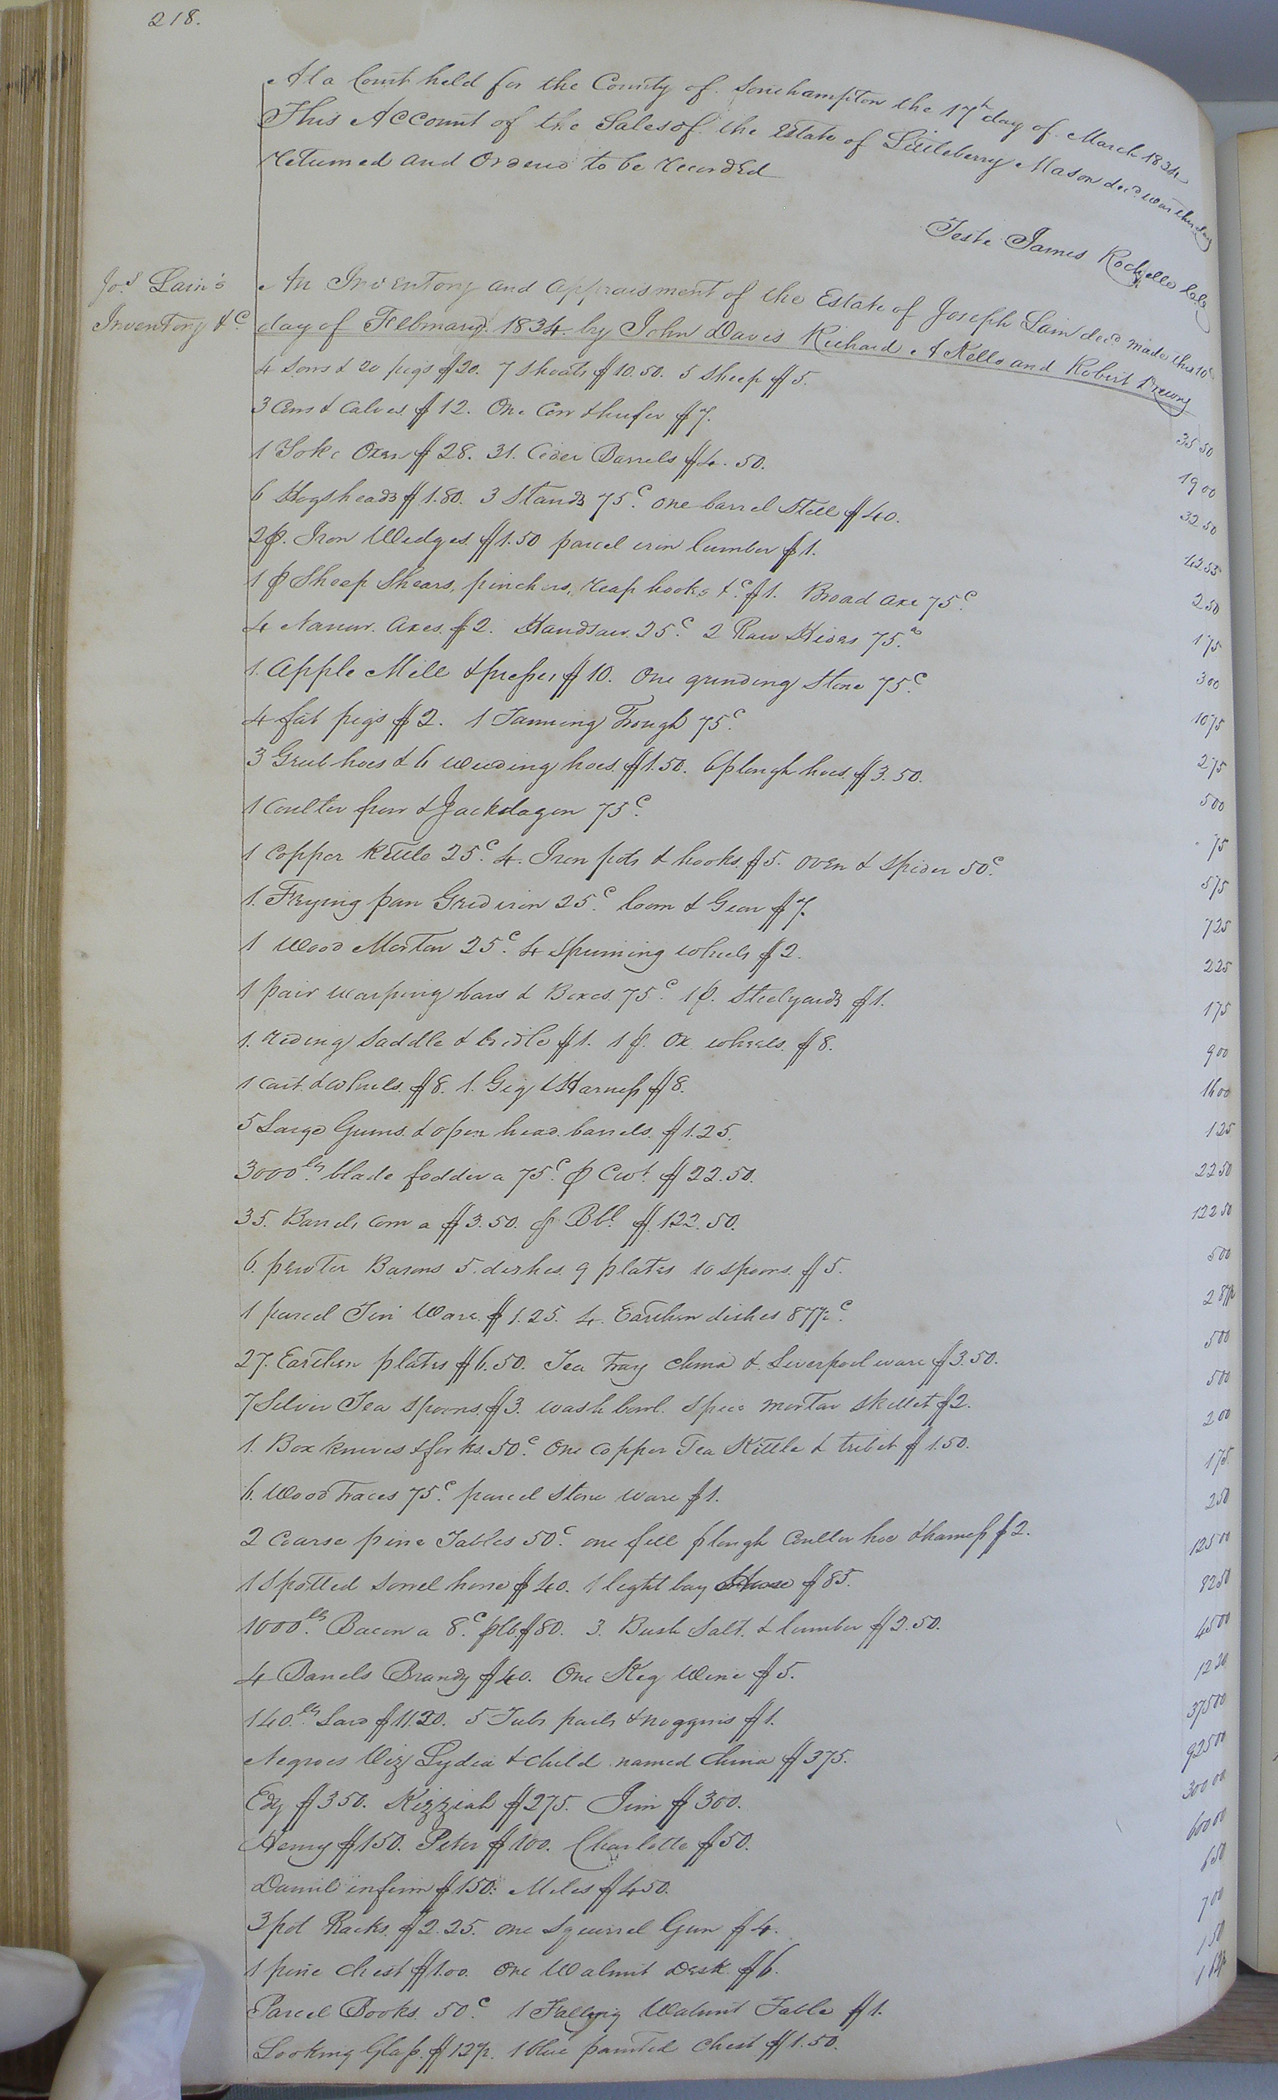 218.
At a Court held for the County of Southampton the 17th day of March 1834
This Account of the Sales of the Estate of Littleberry Mason decd was this day
returned and Ordered to be recorded
Teste James Rochelle C.C.
Jos. Lain's
Inventory &c
An Inventory and appraisment of the Estate of Joseph Lain decd made this 10th
day of February 1834 by John Davis Richard A Kello and Robert Drewry
4 Sows & 20 pigs $20. 7 Shoats $10.50. 5 Sheep $5. 35 50
3 Cows & Calves $12. One Cow & heifer $7. 19 00
1 Yoke Oxen $28. 31. Cider Barrels $4.50. 32 50
6 Hogsheads $1.80. 3 Stands 75c. one barrel Still $40. 42 55
2 p. Iron Wedges $1.50 parcel iron lumber $1. 2 50
1 p Sheep Shears, pinchers, reap hooks &c. $1. Broad axe 75c. 1 75
4 Narrow Axes $2. Handsaw 25c. 2 Raw Hides 75c 3 00
1. Apple Mill & press $10. One grinding Stone 75c. 10 75
4 fat pigs $2. 1 Tanning Trough 75c. 2 75
3 Grub hoes & 6 weeding hoes $1.50. 6 plough hoes $3.50. 5 00
1 Coulter frow & Jackdagon 75c. 75
1 Copper Kettle 25c. 4. Iron pots & hooks $5. Oven & Spider 50c. 5 75
1. Frying pan Gridiron 25c. Loom & Gear $7. 7 25
1 Wood Mortar 25c. 4 Spinning wheels $2. 2 25
1 pair warping bars & Boxes 75c. 1 p. Steelyards $1. 1 75
1. riding Saddle & bridle $1. 1 p. Ox wheels $8. 9 00
1 Cart & wheels $8. 1. Gig & Harness $8. 16 00
5 Large Gums & open head barrels $1.25. 1 25
3000 lbs. blade fodder a 75c. p Cwt $22.50. 22 50
35. Barrels Corn a $3.50. p Bbl. $122.50. 122 50
6. pewter Basons 5. dishes 9 plates 10 spoons $5. 5 00
1 parcel Tin Ware $1.25. 4. Earthen dishes 87 1/2c. 2 87 1/2
27. Earthen plates $6.50. Tea Tray china & Liverpool ware $3.50. 5 00
7 Silver Tea Spoons $3. wash bowl. Spice mortar Skillet $2. 5 00
1. Box knives & forks 50c. One Copper Tea Kettle & tribet $1.50. 2 00
6. Wood Traces 75c. parcel Stone Ware $1. 1 75
2 Coarse pine Tables 50c. one full plough Coulter hoe & hames $2. 2 50
1 Spotted Sorrel horse $40. 1 light bay Horse $85. 125 00
1000 lbs. Bacon a 8c. p lb $80. 3. Bush Salt. & lumber $2.50. 82 50
4 Barrels Brandy $40. One Keg Wine $5. 45 00
140. lbs. Lard $11.20. 5 Tubs pails & noggins $1. 12 20
Negroes Viz Lydia & child named China $375. 375 00
Edy $350. Kizziah $275. Jim $300. 925 00
Henry $150. Peter $100. Charlotte $50. 300 00
Daniel infirm $150. Miles $450. 600 00
3 pot Racks $2.25. one Squirrel Gun $4. 6 50
1 pine Chest $1.00. One Walnut Desk $6. 7 00
Parcel Books 50c 1 Falling Walnut Table $1. 1 50
Looking Glass. $12 1/2. 1 blue painted Chest $1.50. 1 62 1/2